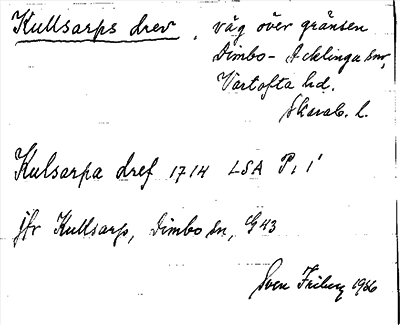 Kullsarps drev, väg över gränsen
Dimbo - Acklinga snr,
Vartofta hd.
Skarab. l.
Kulsarpa dref 1714 LSA P. 1'
jfr Kullsarp, Dimbo sn, G43
Sven Friberg 1986